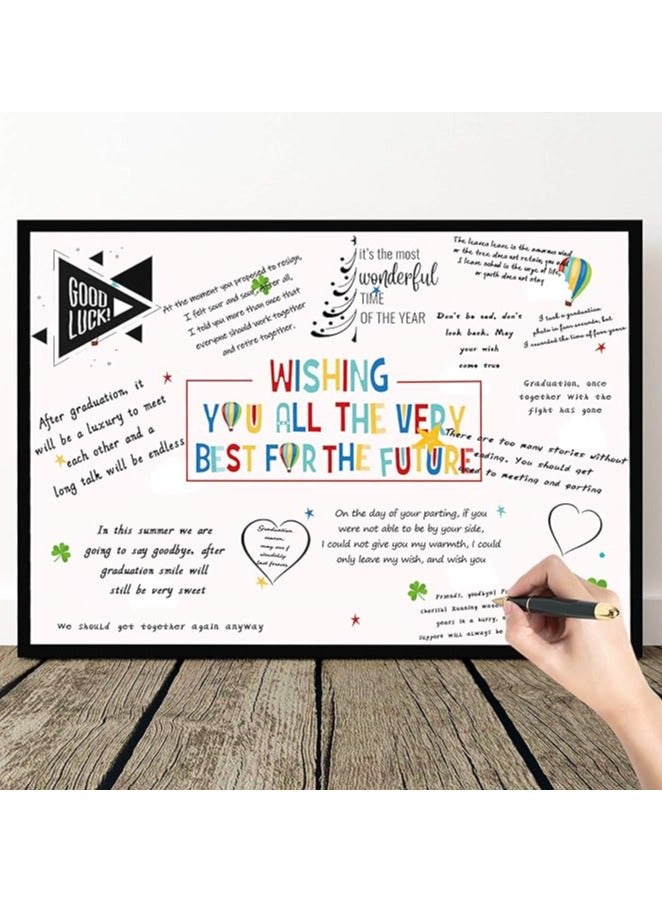 GOOD
LUCK!
At the moment you proposed to resign,
I felt sour and sour, after all,
I told you more than once that
everyone should work together
and retire together.
it's the most
wonderful
TIME
OF THE YEAR
The leaves leave is the
or the tree does not retain, you
I leave school is the urge of life,
or youth does not stay
Don't be sad, don't
look back. May
your wish
come true
I took a graduation
photo in four seconds, but
I recorded the time of four years
Graduation, once
together with the
fight has gone
WISHING
YOU ALL THE VERY
BEST FOR THE FUTURE
After graduation, it
will be a luxury to meet
each other and a
long talk will be endless
There are too many stories without
ending. You should get
used to meeting and parting
In this summer we are
going to say goodbye, after
graduation smile will
still be very sweet
Graduation
season,
may our f
friendship
last forever
On the day of your parting, if you
were not able to be by your side,
I could not give you my warmth, I could
only leave my wish, and wish you
Friends, goodbye!
cherish! Running
years in a hurry,
support will always be
We should get together again anyway